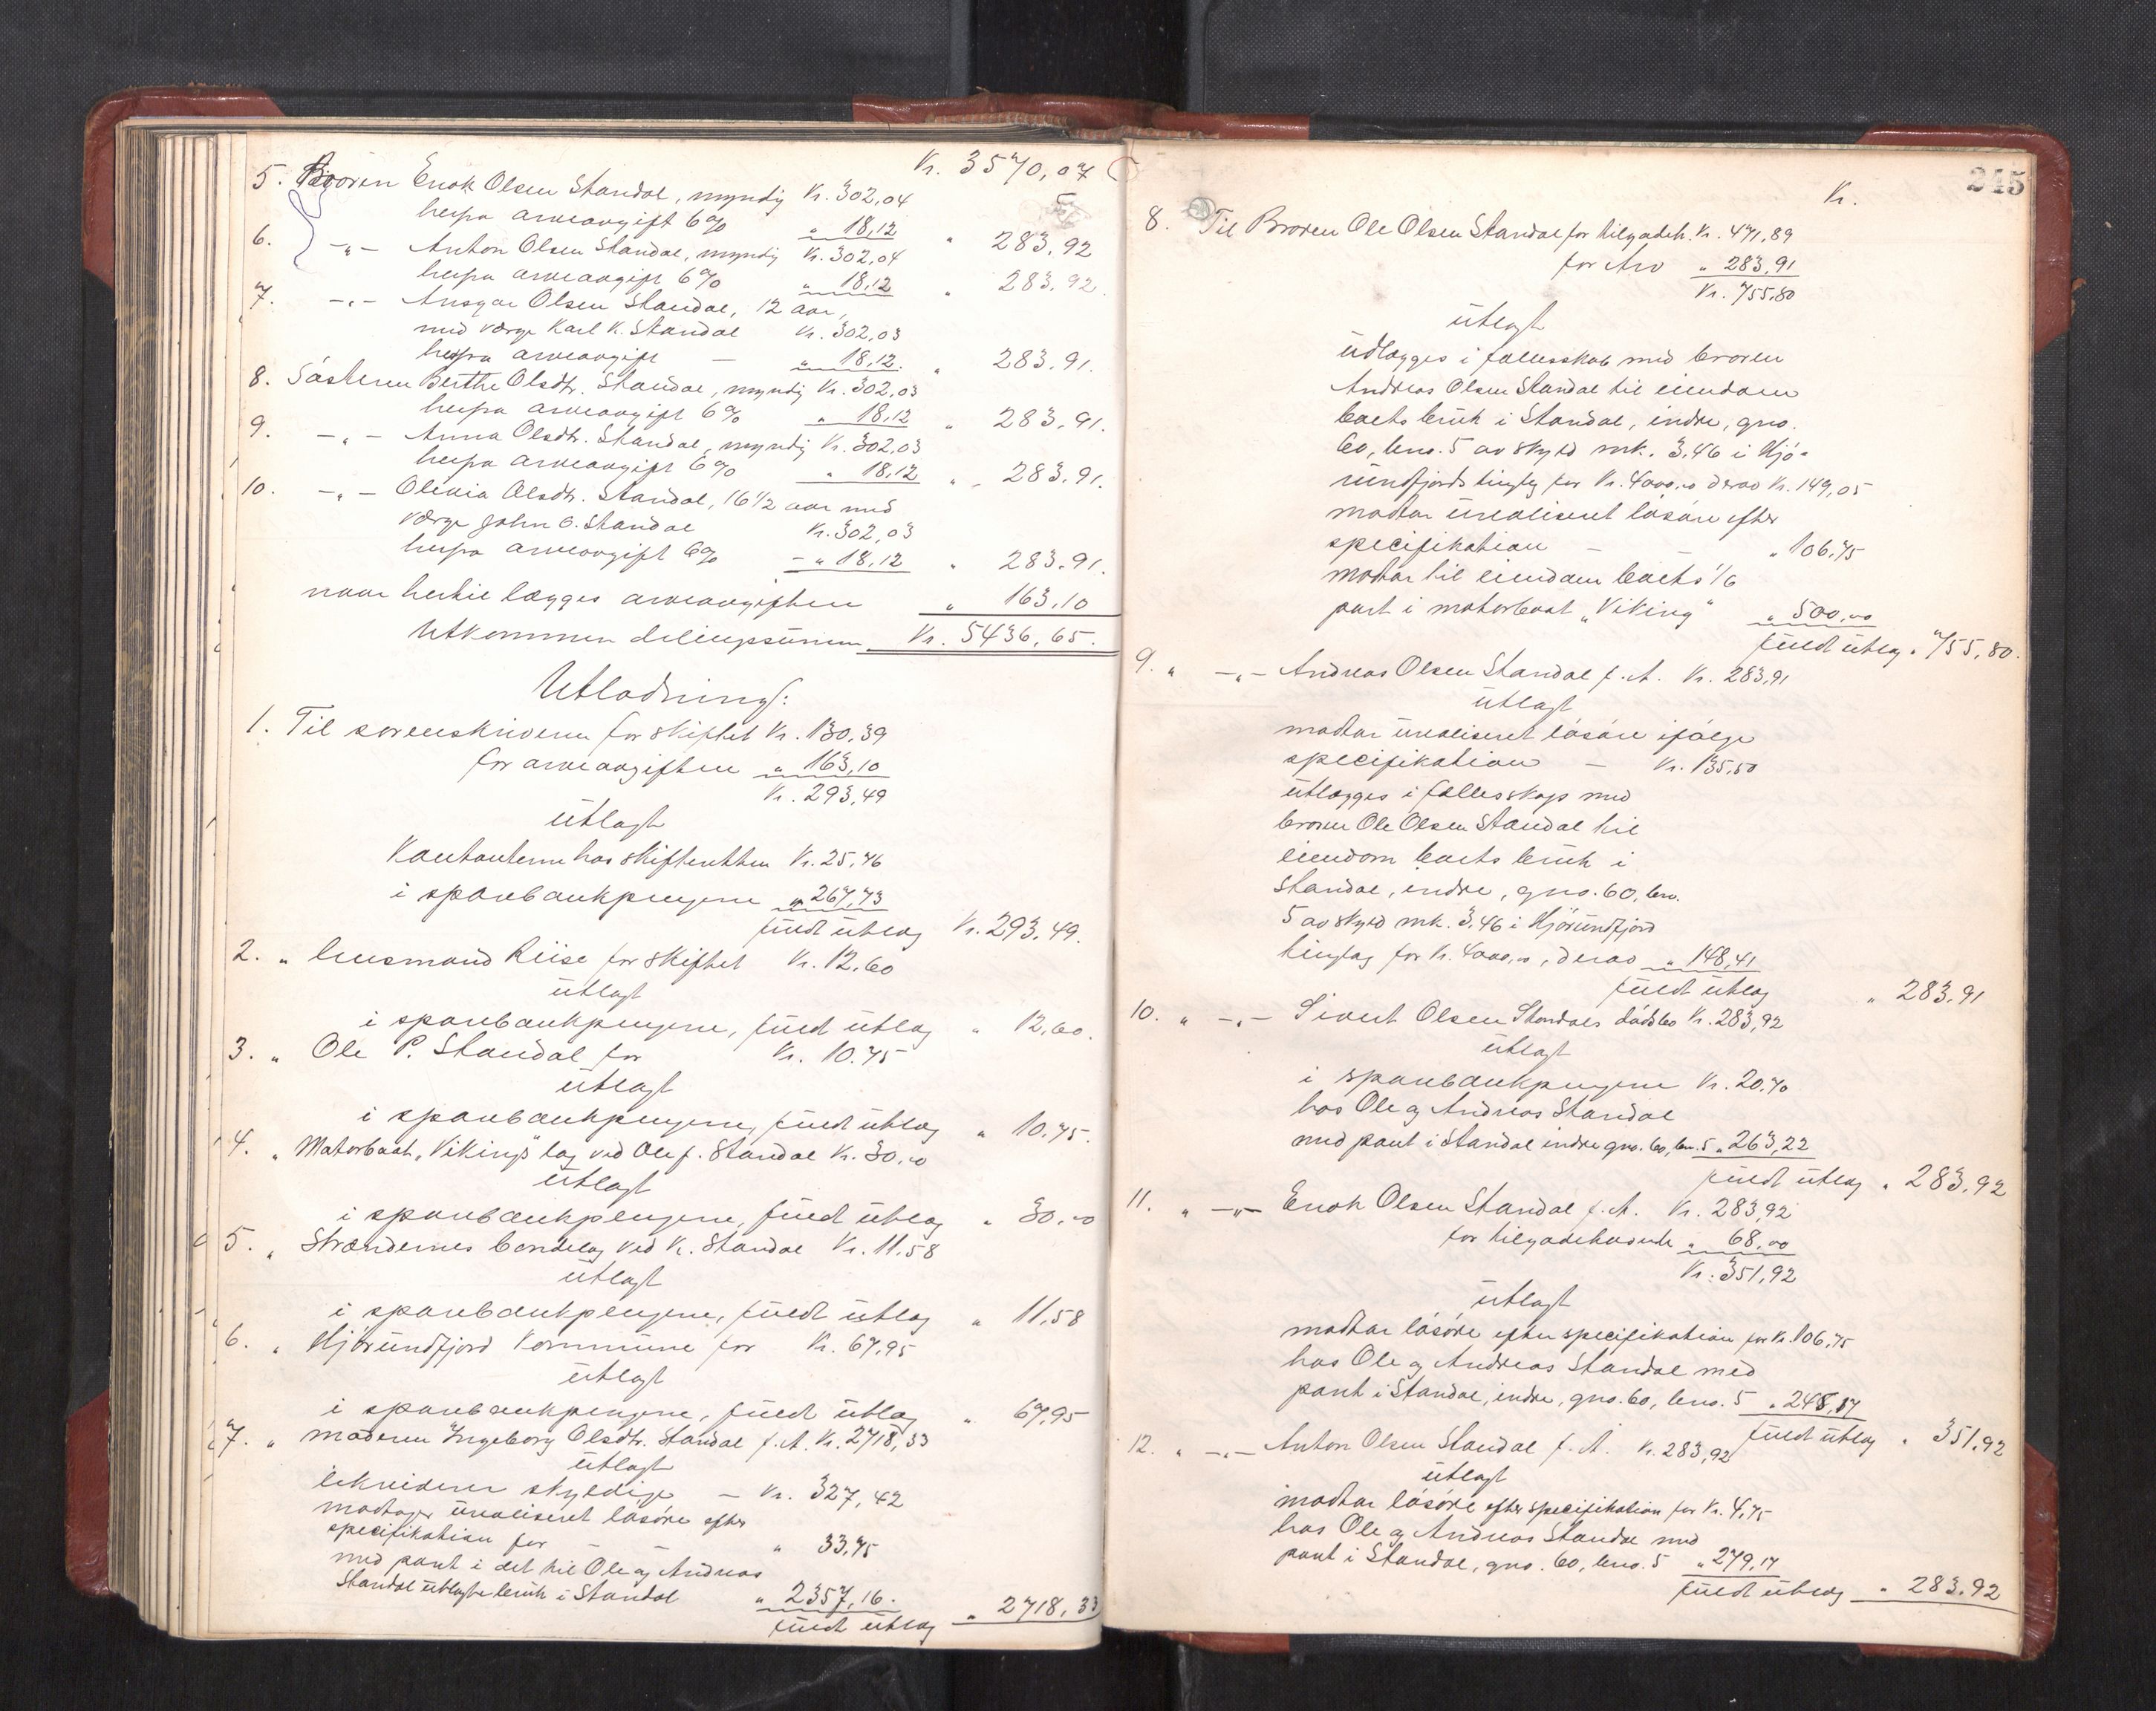 Kr. 3570,07
5. Broren Enok Olsen Standal, myndig Kr. 302,04
herfra arveavgift 6% " 18,12 " 283,92
6. -"- Anton Olsen Standal, myndig Kr. 302,04
herfra arveavgift 6% " 18,12 " 283,92.
7. -"- Ansgar Olsen Standal, 12 aar,
med værge Karl K. Standal Kr. 302,03
herfra arveavgift — " 18,12. " 283,91.
8. Søsteren Berthe Olsdtr. Standal, myndig Kr. 302,03
herfra arveavgift 6% " 18,12 " 283,91.
9. -"- Anna Olsdtr. Standal, myndig Kr. 302,03
herfra arveavgift 6% " 18,12 " 283,91.
10. -"- Olivia Olsdtr. Standal, 16 1/2 aar med
værge John O. Standal Kr. 302,03
herfra arveavgift 6% - " 18,12 " 283,91.
naar hertil lægges arveavgiften " 163,10
Utkommer delingssummen Kr. 5436,65.
Utlodning:
1. Til sorenskriveren for skiftet Kr. 130,39
for arveavgiften " 163,10
Kr. 293,49
utlagt
Kontanterne hos skifteretten Kr. 25,76
i sparebankpengene " 267,73
fuldt utlag Kr. 293,49.
2. " lensmand Riise for skiftet Kr. 12,60
utlagt
i sparebankpengene, fuldt utlag " 12,60.
3. " Ole P. Standal for Kr. 10.75
utlagt
i sparebankpengene, fuldt utlag " 10,75.
4. " Motorbaat "Viking"s lag ved Ole J. Standal Kr. 30,00
utlagt
i sparebankpengene, fuldt utlag " 30,00
5. " Strændernes bondelag ved K. Standal Kr. 11,58
utlagt
i sparebankpengene, fuldt utlag " 11,58
6. " Hjørundfjord kommune for Kr. 67,95
utlagt
i sparebankpengene, fuldt utlag " 67,95
7. " moderen Ingeborg Olsdtr. Standal f. A. Kr. 2718,33
utlagt
skyldige — Kr. 327,42
modtager urealiseret løsøre efter
specifikation for — — " 33,75
med pant i det til Ole og Andreas
Standal utlagte bruk i Standal " 2357,16.
fuldt utlag " 2718,33
245
Kr.
8. Til Broren Ole Olsen Standal for tilgodeh. Kr. 471,89
for Arv " 283,91
Kr. 755,80
utlagt
udlægges i fællesskab med broren
Andreas Olsen Standal til eiendom
boets bruk i Standal, indre, gno.
60, bno. 5 av skyld mk. 3.46 i Hjø-
rundfjords tinglag for Kr. 4000,00 derav Kr. 149,05
modtar urealiseret løsøre efter
specifikation — — " 106,75
modtar til eiendom boets 1/6
part i motorbaat "Viking" " 500,00
fuldt utlag " 755,80.
9. " -"- Andreas Olsen Standal f. A. Kr. 283,91
utlagt
modtar urealiseret løsøre ifølge
specifikation — Kr. 135,50
utlægges i fællesskap med
broren Ole Olsen Standal til
eiendom boets bruk i
Standal, indre, gno. 60, bno.
5 av skyld mk. 3.46 i Hjørundfjord
tinglag for Kr. 4000,00, derav " 148,41
fuldt utlag " 283,91
10. " -"- Sivert Olsen Standals dødsbo Kr. 283,92
utlagt
i sparebankpengene Kr. 20,70
hos Ole og Andreas Standal
med pant i Standal indre gno. 60, bno. 5 " 263,22
fuldt utlag " 283,92
11. " -"- Enok Olsen Standal f. A. Kr. 283,92
for tilgodehavende " 68,00
Kr. 351,92
utlagt
modtar løsøre efter specifikation for Kr. 106,75
hos Ole og Andreas Standal med
pant i Standal, indre, gno. 60, bno. 5 " 245,17
fuldt utlag " 351,92
12. " -"- Anton Olsen Standal f. A. Kr. 283,92
utlagt
modtar løsøre efter specifikation for Kr. 4,75
hos Ole og Andreas Standal med
pant i Standal, gno. 60, bno. 5 " 279,17
fuldt utlag " 283.92